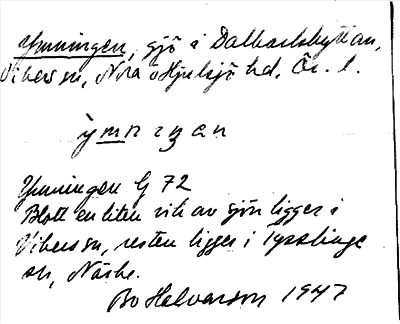 Ymningen, sjö i Dalkarlshyttan,
Vikers sn, Nora o Hjulsjö hd, Ör. l.
Ymningen G 72
Blott en liten vik av sjön ligger i
Vikers sn, resten ligger i Tysslinge
sn, Närke.
Bo Halvarson 1947